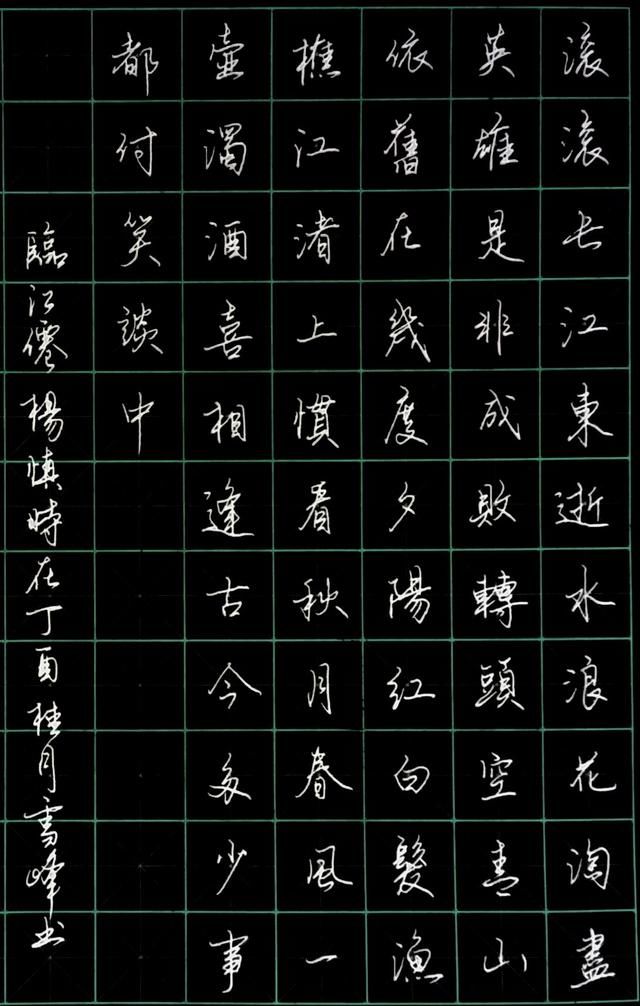 滚滚长江東逝水浪花淘盡
英雄是非成敗轉頭空青山
依舊在幾度夕陽紅白髮漁
樵江渚上慣看秋月春風一
壺濁酒喜相逢古今多少事
都付笑談中
臨江僊楊慎時在丁酉桂月雪峰书